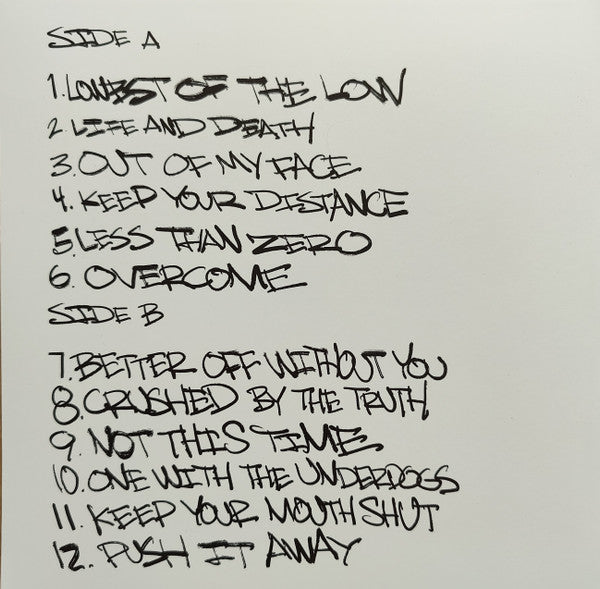 SIDE A
1. LOWEST OF THE LOW
2 LIFE AND DEATH
3. OUT OF MY FACE
4. KEEP YOUR DISTANCE
5. LESS THAN ZERO
6. OVERCOME
SIDE B
7. BETTER OFF WITHOUT YOU
8. CRUSHED BY THE TRUTH
9. NOT THIS TIME
10. ONE WITH THE UNDERDOGS
11. KEEP YOUR MOUTH SHUT
12. PUSH IT AWAY